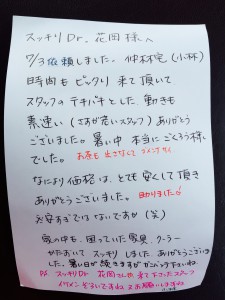 スッキリDr. 花岡様へ
7/3依頼しました。仲林宅(小林)
時間もピッタリ来て頂いて
スタッフのテキパキとした動きも
素速い(さすが若いスタッフ)ありがとう
ございました。暑い中本当にごくろう様
でした。お茶も出さなくてゴメンナサイ
なにより価格は、とても安くして頂き
ありがとうございました。助かりました
安すぎではないですか(笑)
家の中も、困っていた家具、クーラー
かたずいて スッキリ しました。ありがとうございま
した。暑い日が続きますが がんばって下さいね
PS スッキリDr 花岡さん 来て下さったスタッフ
イケメン
またお願いしますね